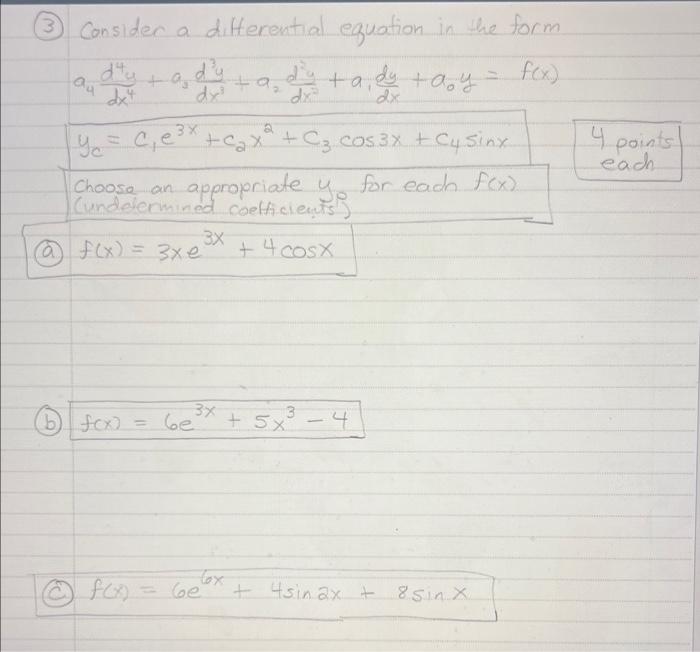 ③ Consider a differential equation in the form
a₄ d⁴y/dx⁴ + a₃ d³y/dx³ + a₂ d²y/dx² + a₁ dy/dx + a₀y = f(x)
y_c = C₁e^3x + C₂x² + C₃ cos3x + C₄ sinx
4 points
each
Choose an appropriate y_p for each f(x)
(undetermined coefficients)
ⓐ f(x) = 3xe^3x + 4cosx
ⓑ f(x) = 6e^3x + 5x³ - 4
ⓒ f(x) = 6e^6x + 4sin2x + 8sinx